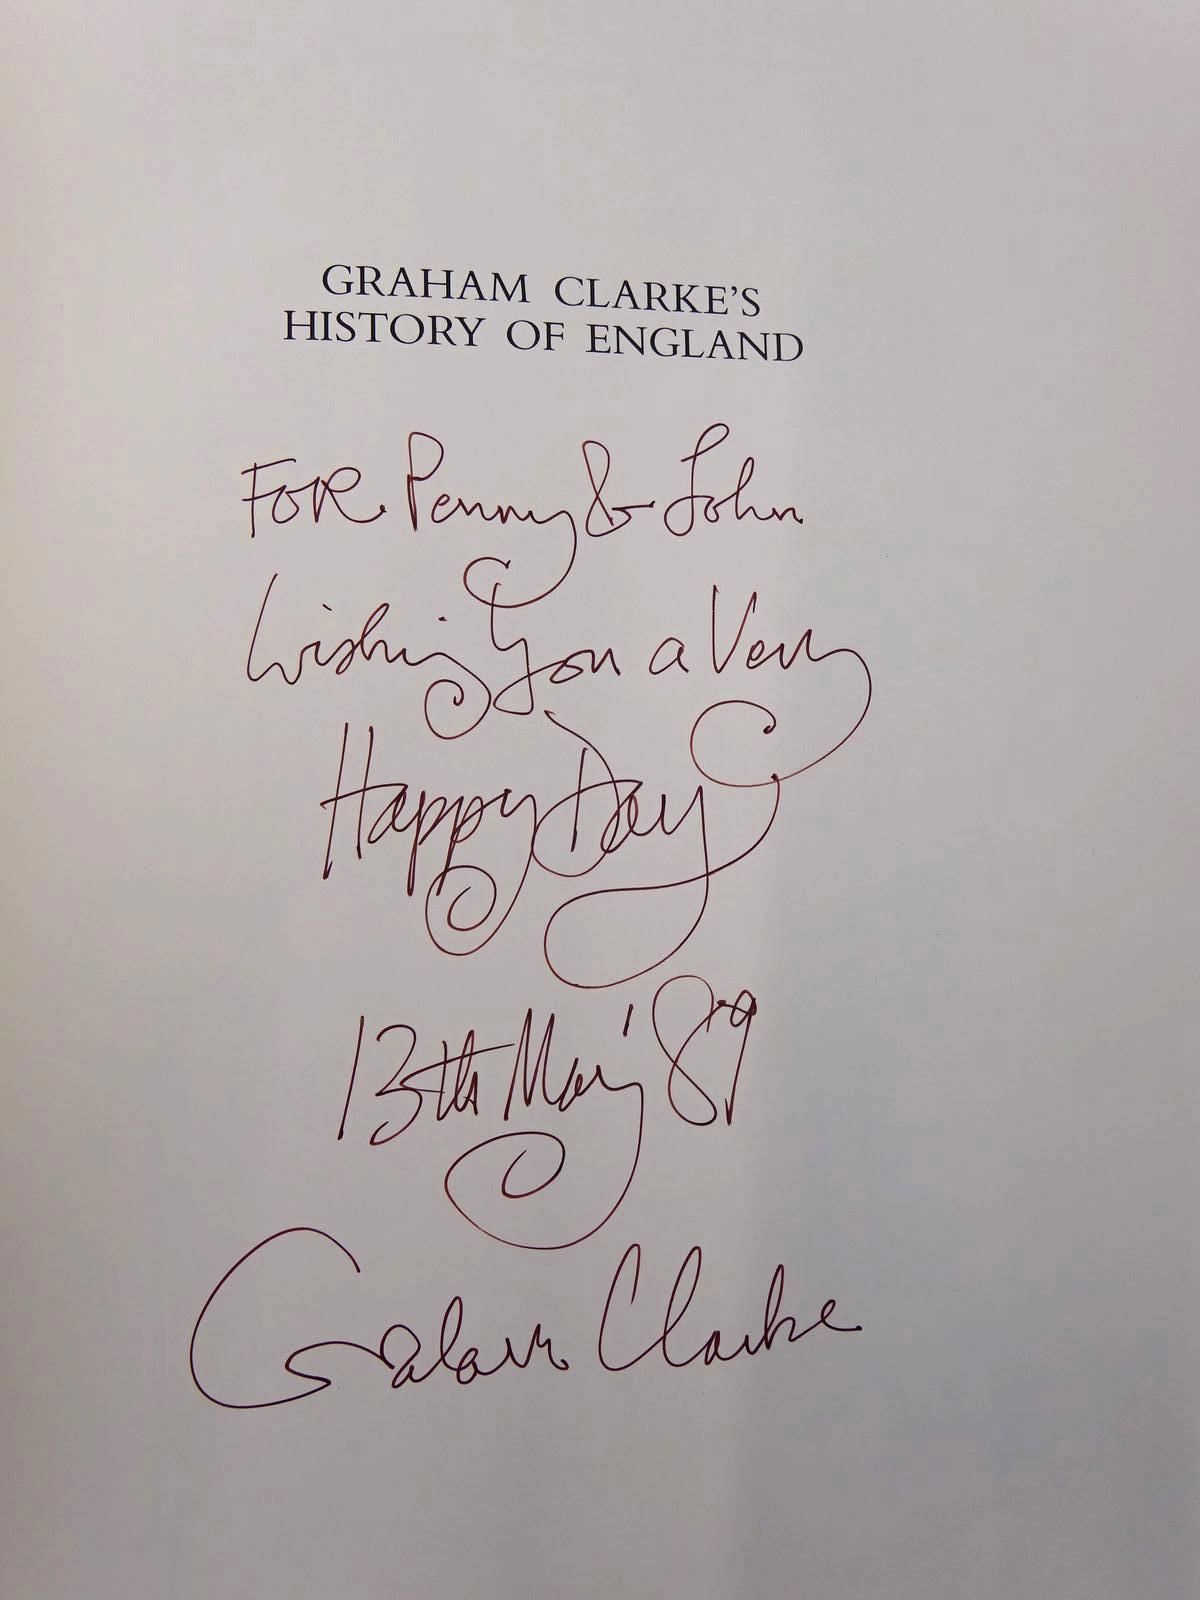 GRAHAM CLARKE'S
HISTORY OF ENGLAND
FOR Penny & John
Wishing you a Very
Happy Day
13th May '89
Graham Clarke